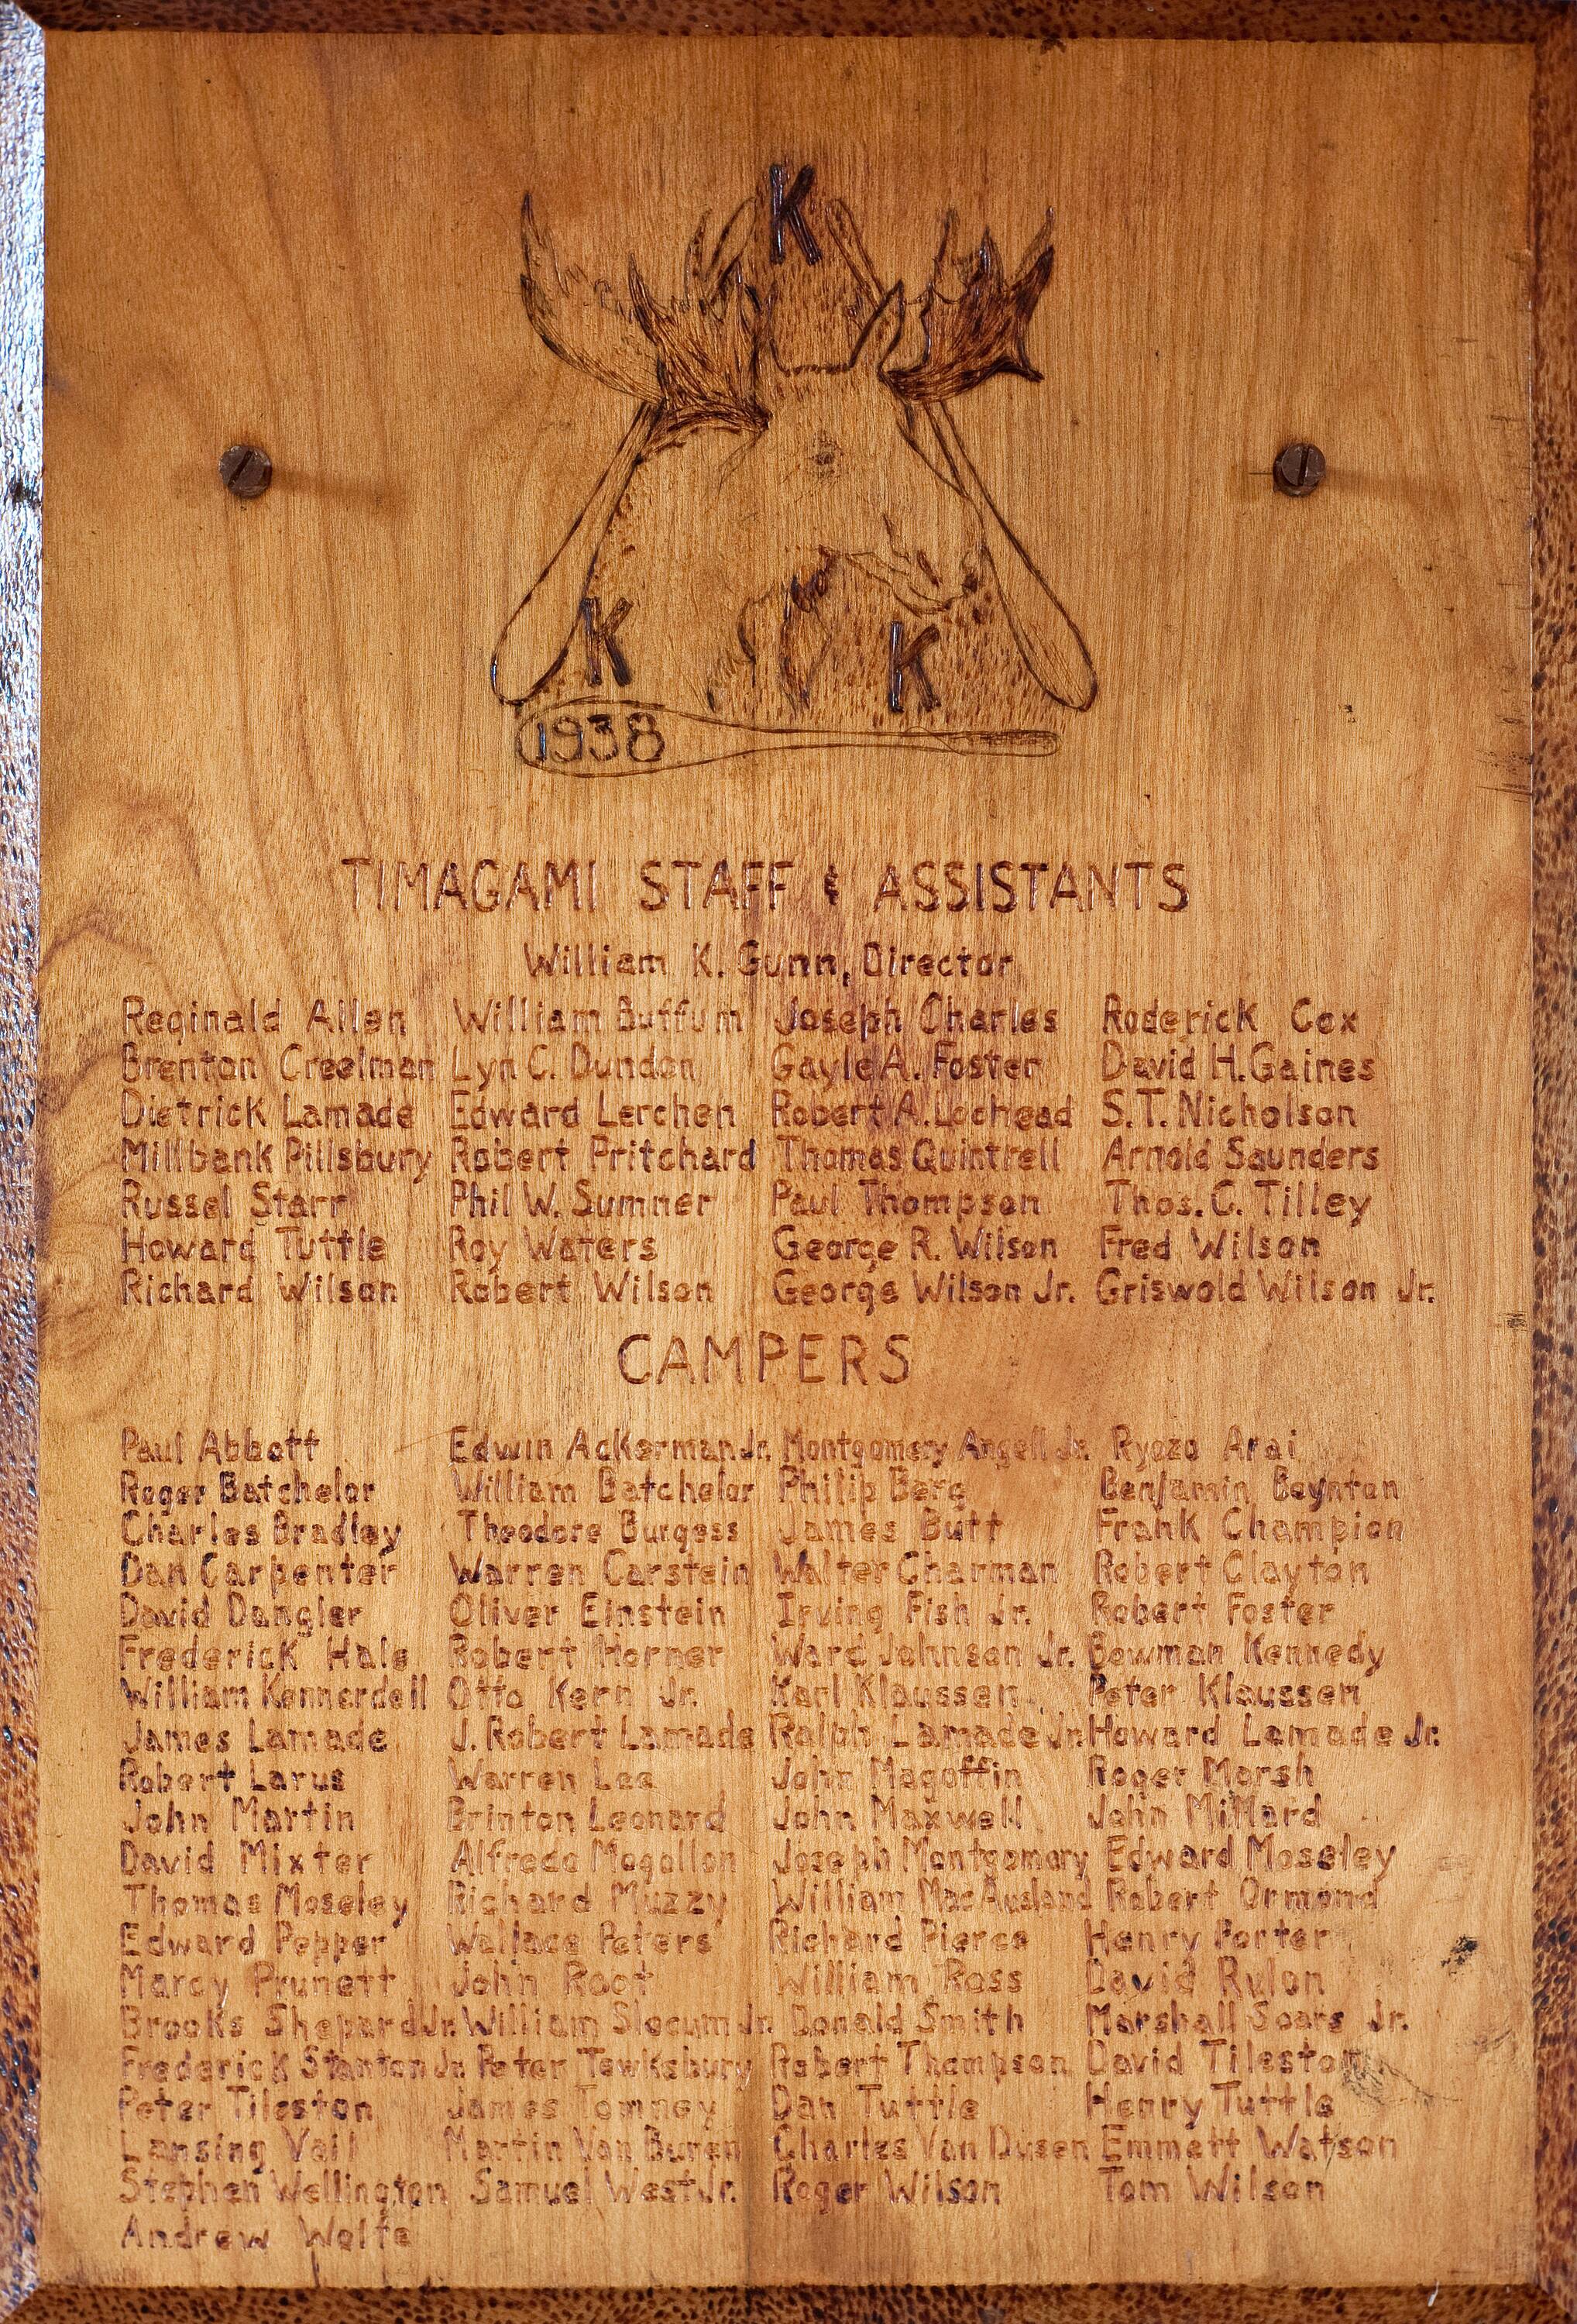 K
K K
1938
TIMAGAMI STAFF & ASSISTANTS
William K. Gunn, Director
Reginald Allen William Buffum Joseph Charles Roderick Cox
Brenton Creelman Lyn C. Dundon Gayle A. Foster David H. Gaines
Dietrick Lamade Edward Lerchen Robert A. Lochead S.T. Nicholson
Millbank Pillsbury Robert Pritchard Thomas Quintrell Arnold Saunders
Russel Starr Phil W. Sumner Paul Thompson Thos. C. Tilley
Howard Tuttle Roy Waters George R. Wilson Fred Wilson
Richard Wilson Robert Wilson George Wilson Jr. Griswold Wilson Jr.
CAMPERS
Paul Abbott Edwin Ackerman Jr. Montgomery Angell Jr. Ryozo Arai
Roger Batchelor William Batchelor Philip Berg Benjamin Boynton
Charles Bradley Theodore Burgess James Butt Frank Champion
Dan Carpenter Warren Carstein Walter Charman Robert Clayton
David Dangler Oliver Einstein Irving Fish Jr. Robert Foster
Frederick Hale Robert Horner Ward Johnson Jr. Bowman Kennedy
William Kennerdell Otto Kern Jr. Karl Klaussen Peter Klaussen
James Lamade J. Robert Lamade Ralph Lamade Jr. Howard Lamade Jr.
Robert Larus Warren Lee John Magoffin Roger Marsh
John Martin Brinton Leonard John Maxwell John Millard
David Mixter Alfredo Mogollon Joseph Montgomery Edward Moseley
Thomas Moseley Richard Muzzy William MacAusland Robert Ormond
Edward Pepper Wallace Peters Richard Pierce Henry Porter
Marcy Prunett John Root William Ross David Rulon
Brooks Shepard Jr. William Slocum Jr. Donald Smith Marshall Sears Jr.
Frederick Stanton Jr. Peter Tewksbury Robert Thompson David Tileston
Peter Tileston James Tomney Dan Tuttle Henry Tuttle
Lansing Vail Martin Van Buren Charles Van Dusen Emmett Watson
Stephen Wellington Samuel West Jr. Roger Wilson Tom Wilson
Andrew Wolfe